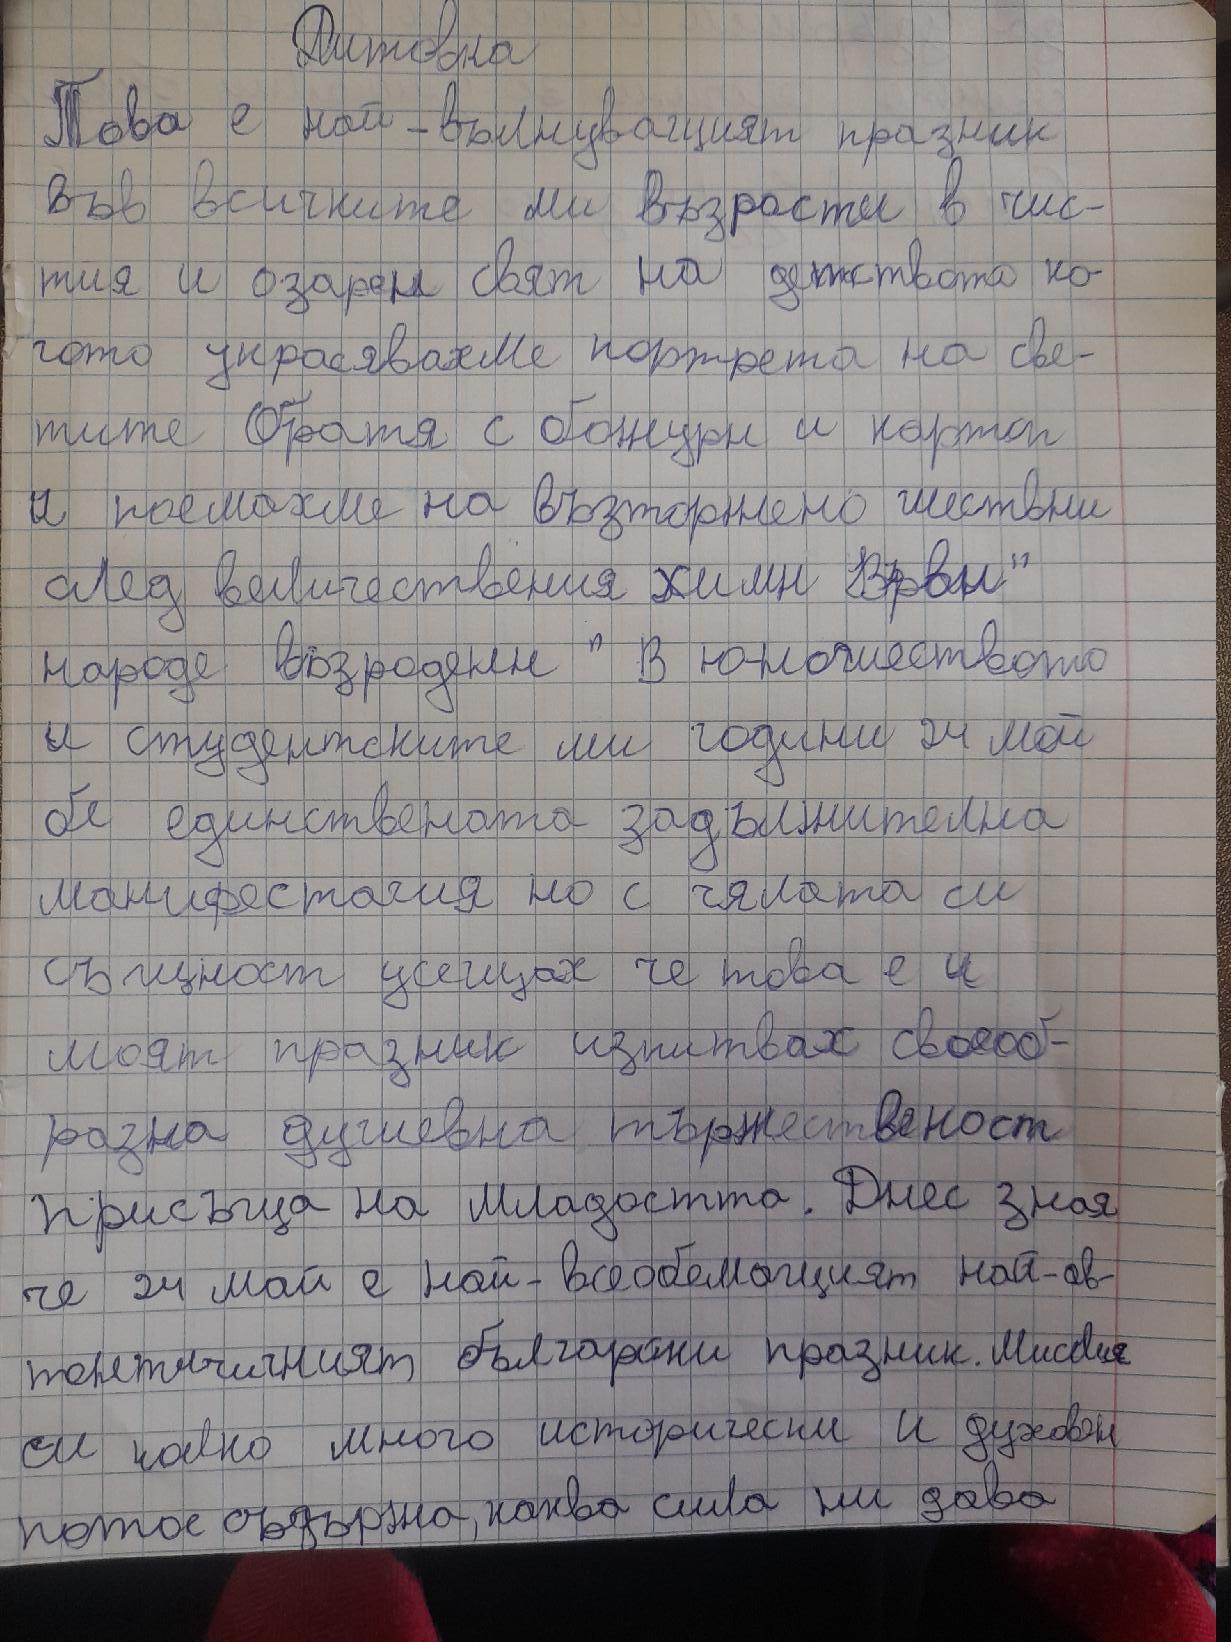 Диктовка
Това е най-вълнуващият празник
във всичките ми възрасти в чис-
тия и озарен свят на детството ко-
гато украсявахме портрета на све-
тите братя с божури и картон
и поемахме на възторжено шествии
след величествения химн Върви"
народе възродени" В юношеството
и студентските ми години 24 май
бе единствената задължителна
манифестация но с цялата си
същност усещах че това е и
моят празник изпитвах своеоб-
разна душевна тържественост
присъща на младостта. Днес зная
че 24 май е най-всеобемащият най-ав-
тентичният български празник. Мисля
си колко много исторически и духовен
потос съдържа, каква сила ни дава